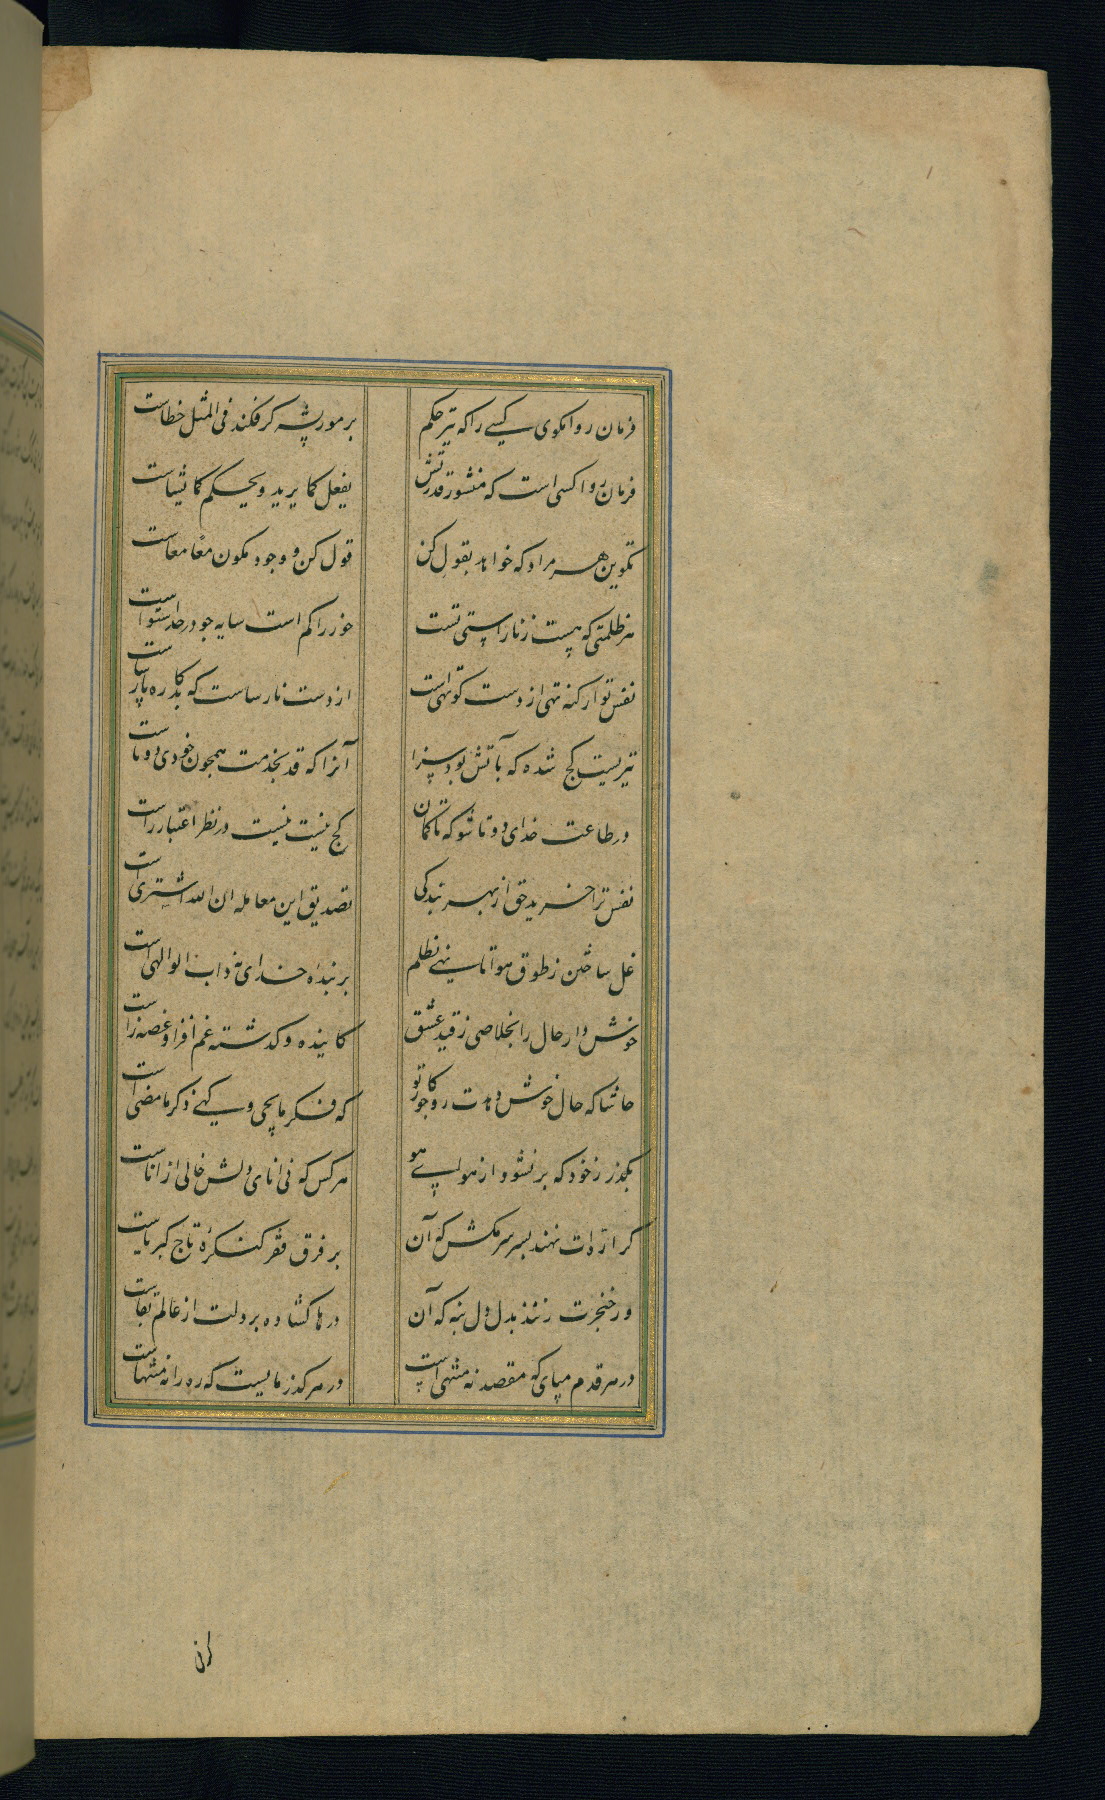 فرمان روا مگوی کسی را که تیر حکم
بر مور پشه گر فکند فی المثل خطاست
فرمان روا کسی است که منشور قدرتش
یفعل کما یرید و یحکم کما یشاست
تکوین هر مراد که خواهد بقول کن
قول کن و وجود مکون معا معاست
هر ظلمتی که هست ز ناراستی تست
خور را کم است سایه چو در حد استواست
نفس تو ار کنه تهی از دست کوتهی است
از دست نارساست که بدکاره پارساست
تیریست کج شده که بآتش بود سزا
آنرا که قد بخدمت همچون خودی دوتاست
در طاعت خدای دوتا شو که تا کمان
کج نیست نیست در نظر اعتبار راست
نفس ترا خرید حق از بهر بندگی
تصدیق این معامله ان الله اشتری است
غل ساختن ز طوق هوا تا نهی بظلم
بر بنده خدای نه داب الو الهی است
خوش دار حال را بخلاصی ز قید عشق
کاینده و گذشته غم افزا و غصه زاست
حاشا که حال خوش دهدت رو چو کار تو
که فکر مایجی و گهی ذکر ما مضی است
بگذر ز خود که برنشود از هوای هو
هر کس که نی انای دلش خالی از اناست
گر اره ات نهند بسر سر مکش که آن
بر فرق فقر کنگره تاج کبریاست
ور خنجرت زنند بدل دل بنه که آن
درها گشاده بر دلت از عالم بقاست
در هر قدم مپای که مقصد نه منتهی است
در هر گذر مایست که ره را نه منتهاست